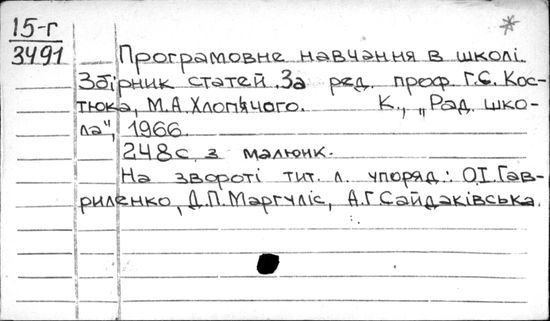 15-г
3491
Програмовне навчання в школі.
Збірник статей. За ред. проф. Г.С. Кос-
тюка, М.А. Хлоп'ячого. К., „Рад. шко-
ла", 1966.
248с. з малюнк.
На звороті тит. л. упоряд.: О.І. Гав-
риленко, Д.П. Маргуліс, А.Г. Сайдаківська.